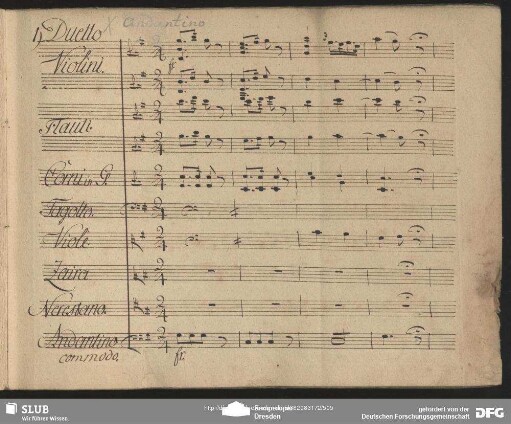 Duetto
Andantino
Violini.
Flauti.
Corni in G.
Fagotto.
Viole
Zaira
Nerestano.
Andantino
commodo.
SLUB
Wir führen Wissen.
Dresden
gefördert von der
Deutschen Forschungsgemeinschaft
DFG